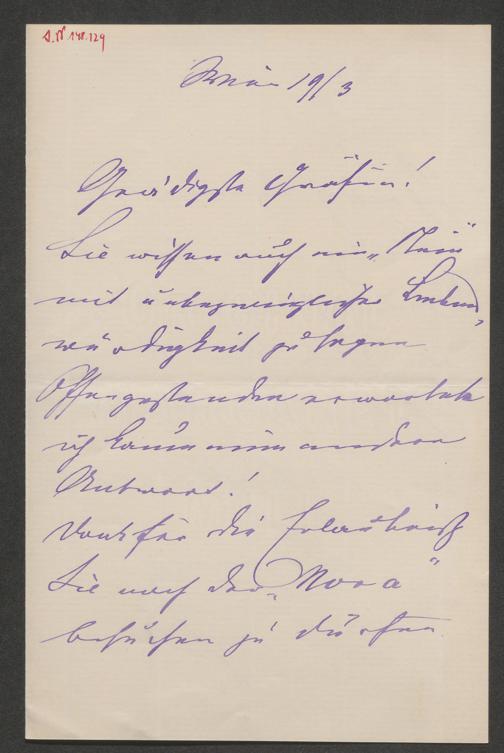 I.N. 148.129
Wien 19/3
Gnädigste Gräfin!
Sie wissen auch ein „Nein“
mit unbezwinglicher Liebens-
würdigkeit zu sagen
Offengestanden erwartete
ich kaum eine andere
Antwort!
Dank für die Erlaubniß
Sie nach der „Nora“
besuchen zu dürfen